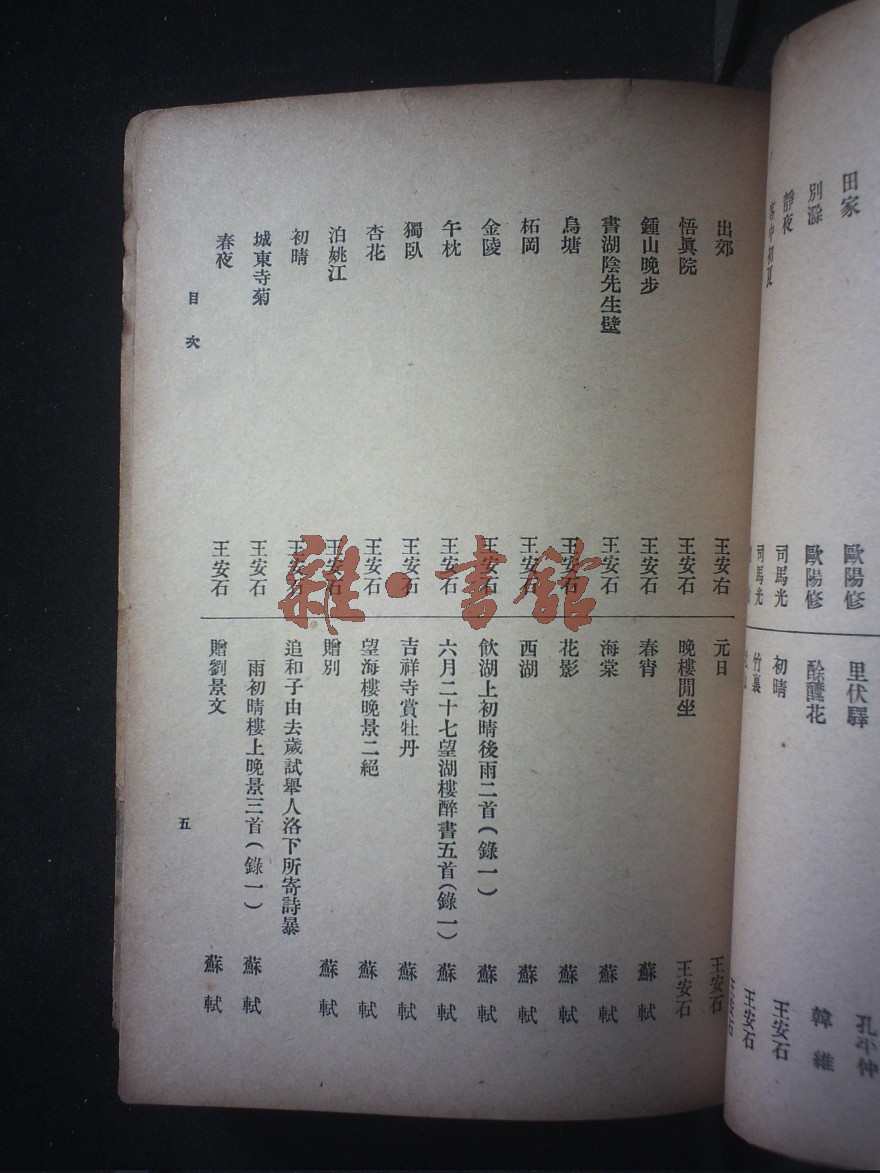 田家 歐陽修
別滁 歐陽修
靜夜 司馬光
客中初夏 司馬光
里伏驛 孔平仲
酴醾花 韓維
初晴 王安石
竹裏 王安石
王安石
出郊 王安石
悟眞院 王安石
鍾山晚步 王安石
書湖陰先生壁 王安石
烏塘 王安石
柘岡 王安石
金陵 王安石
午枕 王安石
獨臥 王安石
杏花 王安石
泊姚江 王安石
初晴 王安石
城東寺菊 王安石
春夜 王安石
元日 王安石
晚樓閒坐 王安石
春宵 蘇軾
海棠 蘇軾
花影 蘇軾
西湖 蘇軾
飲湖上初晴後雨二首(錄一) 蘇軾
六月二十七望湖樓醉書五首(錄一) 蘇軾
吉祥寺賞牡丹 蘇軾
望海樓晚景二絕 蘇軾
贈別 蘇軾
追和子由去歲試舉人洛下所寄詩暴
雨初晴樓上晚景三首(錄一) 蘇軾
贈劉景文 蘇軾
目次
五
雜·書館